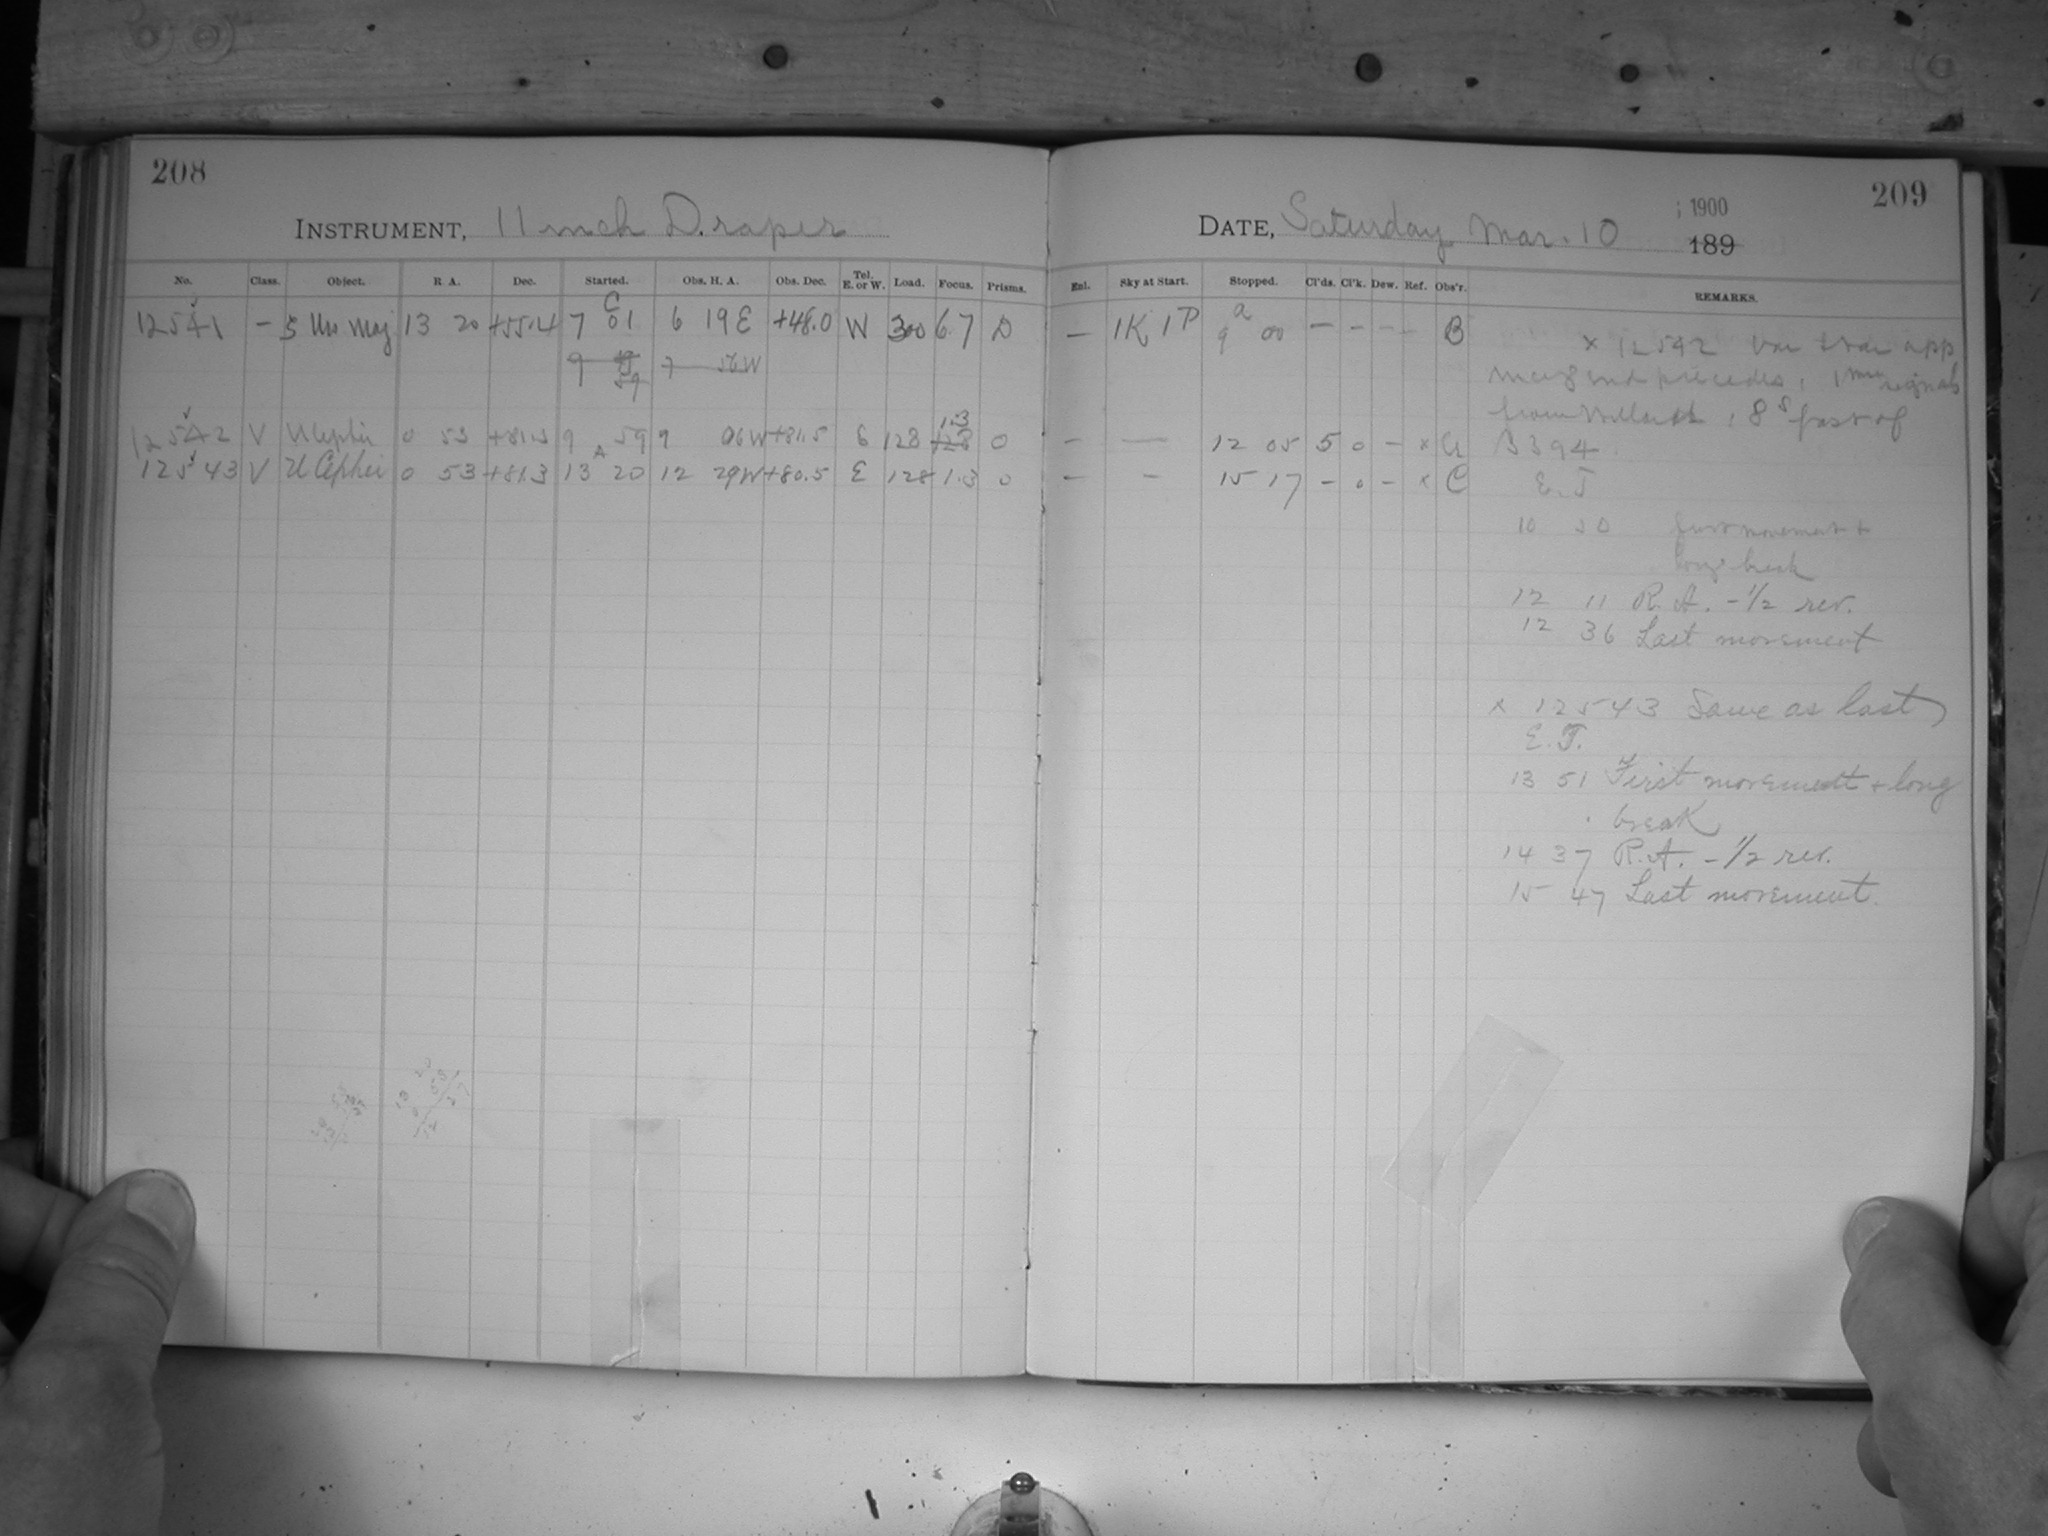 208
INSTRUMENT, 11 inch Draper
No. Class. Object. R A. Dec. Started. Obs. H. A. Obs. Dec. Tel. E. or W. Load. Focus. Prisms.
12541 – ζ Urs Maj 13 20 +55.4 7 C 01 6 19 E +48.0 W 300 6.7 D
9 59 7 56 W
12542 V U Cephei 0 53 +81.3 9 59 9 06 W +81.5 E 128 1.3 0
12543 V U Cephei 0 53 +81.3 13 A 20 12 29 W +80.5 E 128 1.3 0
209
DATE, Saturday Mar. 10 1900
189
Enl. Sky at Start. Stopped. Cl'ds. Cl'k. Dew. Ref. Obs'r. REMARKS.
— 1K 1P 9 a 00 – – – – B
– — 12 05 5 0 – x
– – 15 17 – 0 – x C
x 12542
precedes, signals
from Willard, 8s fast of
B 394
E. T.
10 50 First movement +
long break
12 11 R.A. -1/2 rev.
12 36 Last movement
x 12543 Same as last
E.T.
13 51 First movement + long
break
14 37 R.A. -1/2 rev.
15 47 Last movement.